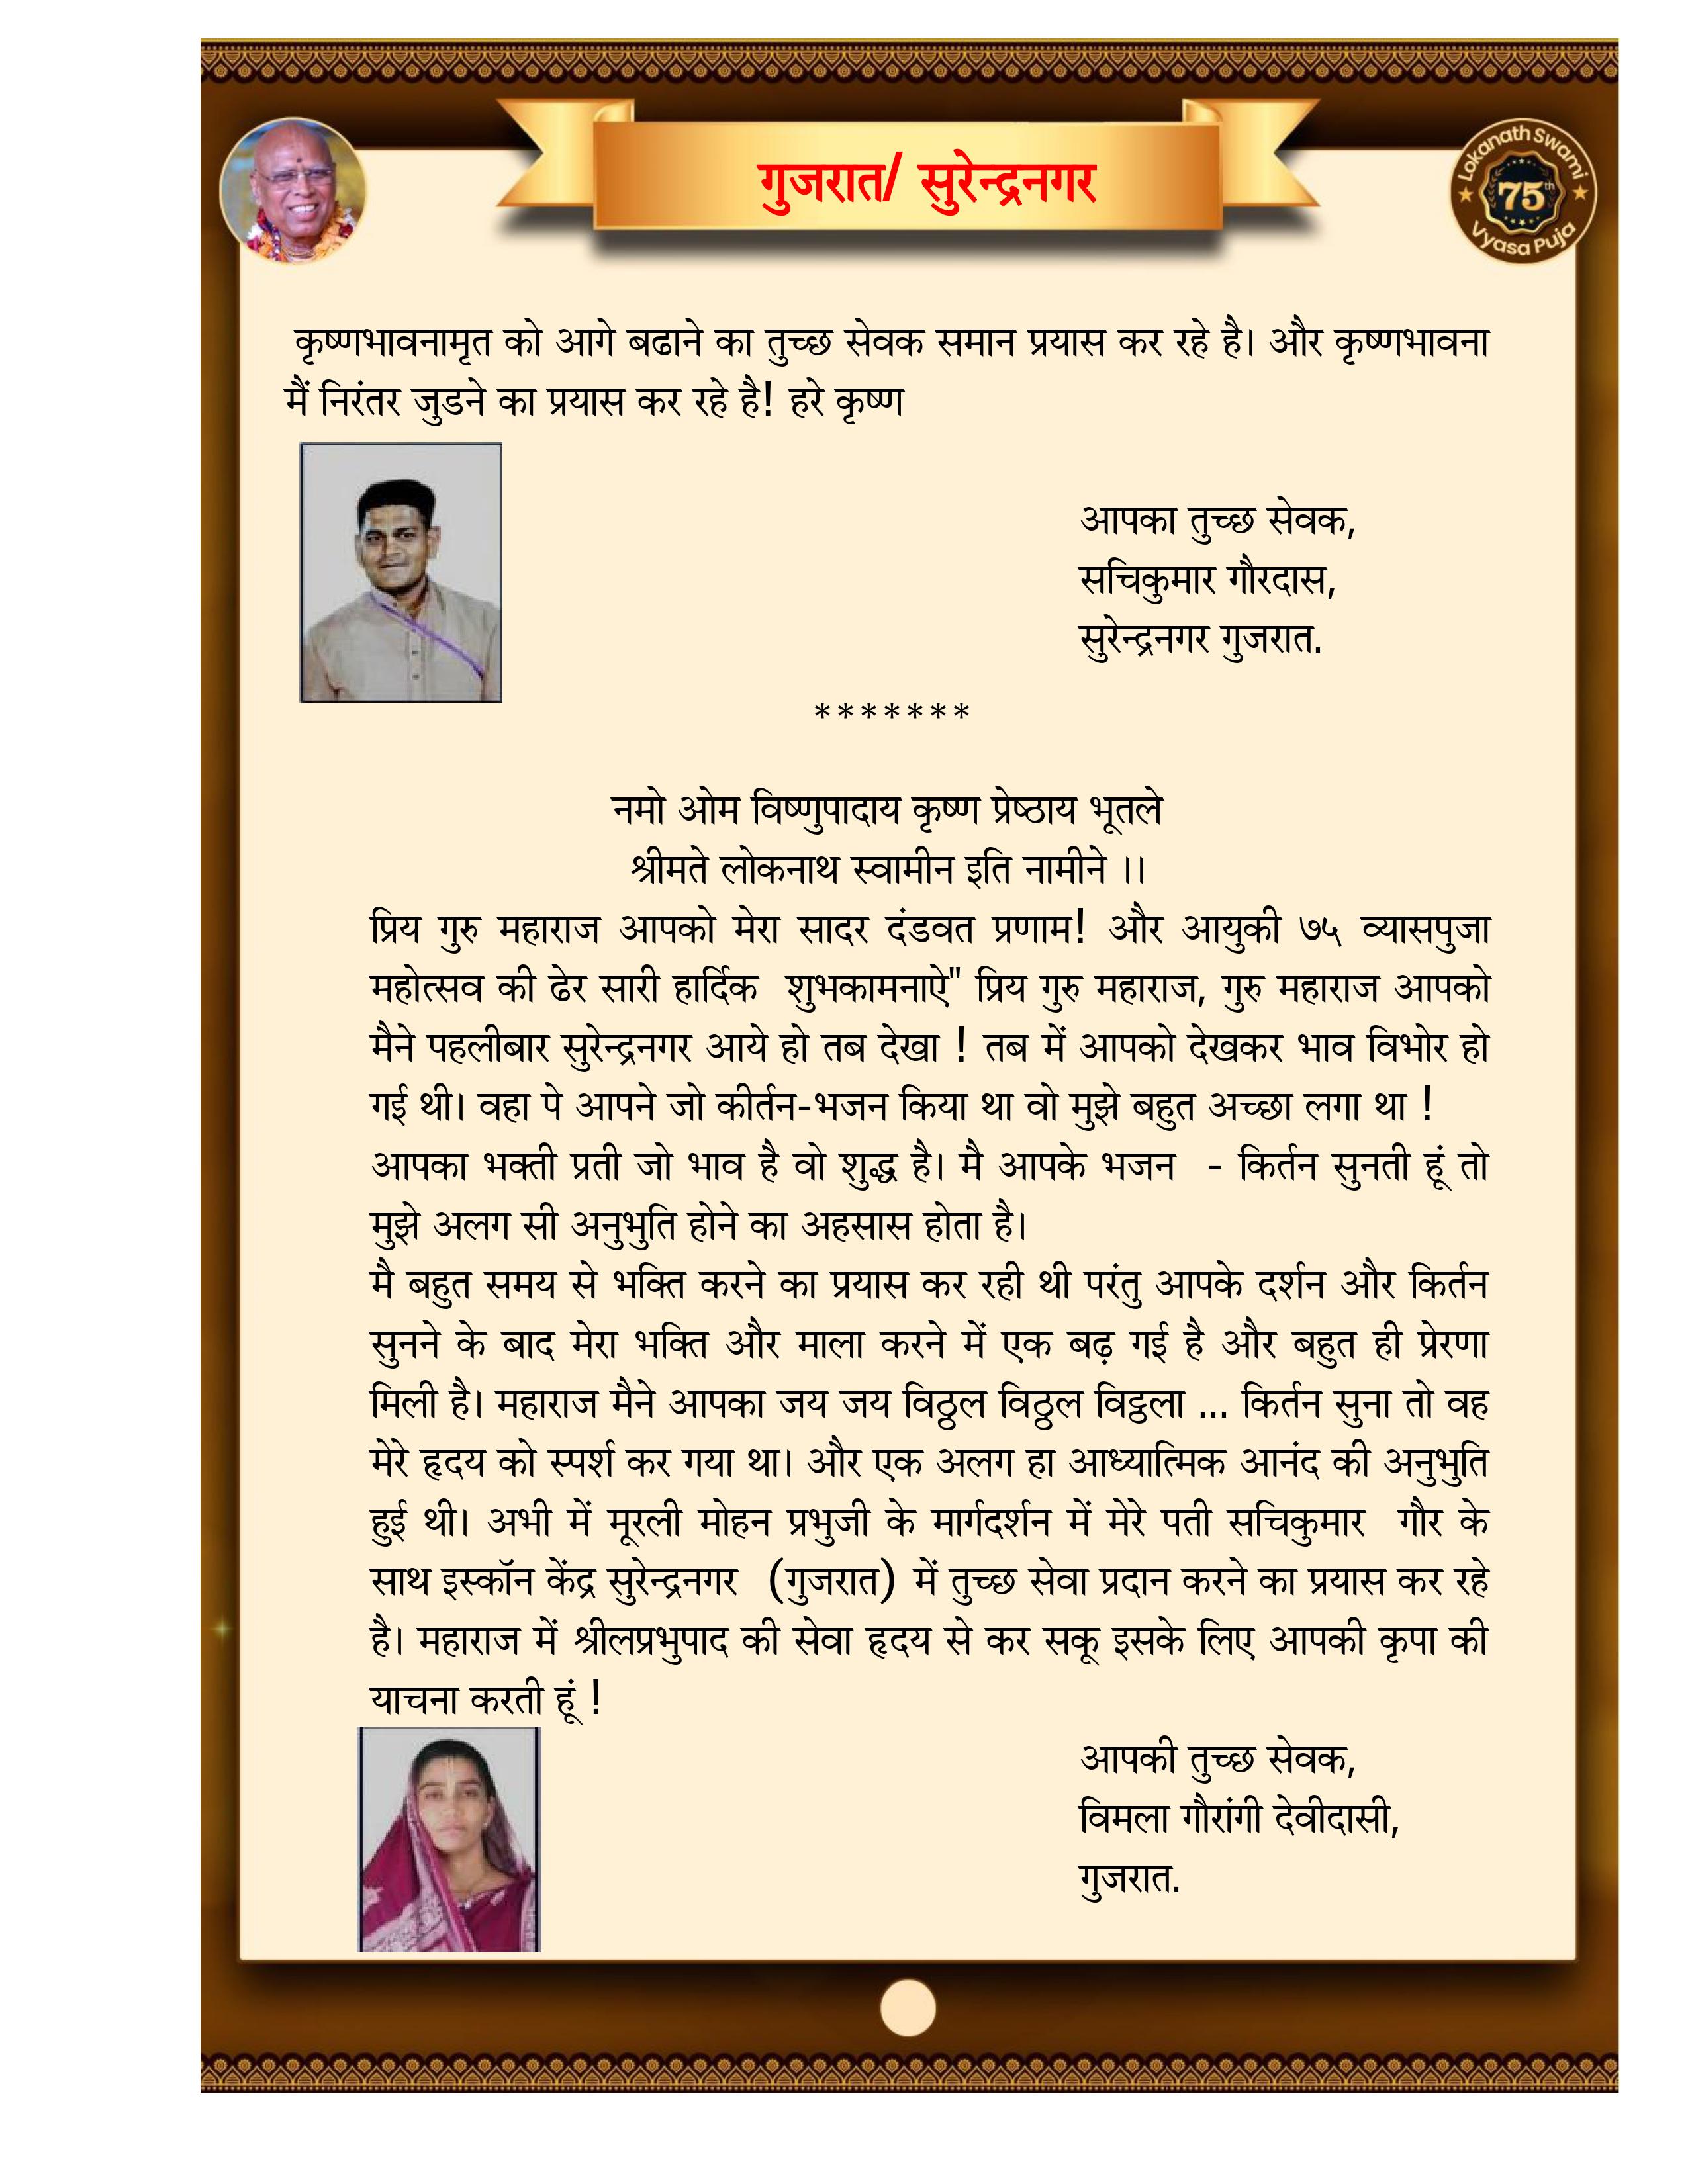 गुजरात/ सुरेन्द्रनगर
Lokanath Swami
75th
Vyasa Puja
कृष्णभावनामृत को आगे बढाने का तुच्छ सेवक समान प्रयास कर रहे है। और कृष्णभावना
मैं निरंतर जुडने का प्रयास कर रहे है! हरे कृष्ण
आपका तुच्छ सेवक,
सचिकुमार गौरदास,
सुरेन्द्रनगर गुजरात.
*******
नमो ओम विष्णुपादाय कृष्ण प्रेष्ठाय भूतले
श्रीमते लोकनाथ स्वामीन इति नामीने ।।
प्रिय गुरु महाराज आपको मेरा सादर दंडवत प्रणाम! और आयुकी ७५ व्यासपुजा
महोत्सव की ढेर सारी हार्दिक शुभकामनाऐ" प्रिय गुरु महाराज, गुरु महाराज आपको
मैने पहलीबार सुरेन्द्रनगर आये हो तब देखा ! तब में आपको देखकर भाव विभोर हो
गई थी। वहा पे आपने जो कीर्तन-भजन किया था वो मुझे बहुत अच्छा लगा था !
आपका भक्ती प्रती जो भाव है वो शुद्ध है। मै आपके भजन - किर्तन सुनती हूं तो
मुझे अलग सी अनुभुति होने का अहसास होता है।
मै बहुत समय से भक्ति करने का प्रयास कर रही थी परंतु आपके दर्शन और किर्तन
सुनने के बाद मेरा भक्ति और माला करने में एक बढ़ गई है और बहुत ही प्रेरणा
मिली है। महाराज मैने आपका जय जय विठ्ठल विठ्ठल विट्ठला ... किर्तन सुना तो वह
मेरे हृदय को स्पर्श कर गया था। और एक अलग हा आध्यात्मिक आनंद की अनुभुति
हुई थी। अभी में मूरली मोहन प्रभुजी के मार्गदर्शन में मेरे पती सचिकुमार गौर के
साथ इस्कॉन केंद्र सुरेन्द्रनगर (गुजरात) में तुच्छ सेवा प्रदान करने का प्रयास कर रहे
है। महाराज में श्रीलप्रभुपाद की सेवा हृदय से कर सकू इसके लिए आपकी कृपा की
याचना करती हूं !
आपकी तुच्छ सेवक,
विमला गौरांगी देवीदासी,
गुजरात.